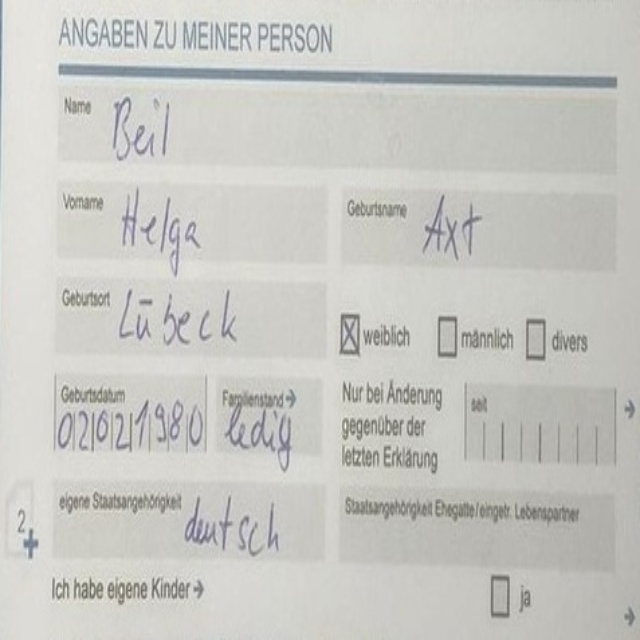 ANGABEN ZU MEINER PERSON
Name Beil
Vorname Helga Geburtsname Axt
Geburtsort Lübeck
weiblich männlich divers
Geburtsdatum 02021980 Familienstand ledig
Nur bei Änderung
gegenüber der
letzten Erklärung
seit
eigene Staatsangehörigkeit deutsch
Staatsangehörigkeit Ehegatte/eingetr. Lebenspartner
2
Ich habe eigene Kinder ja